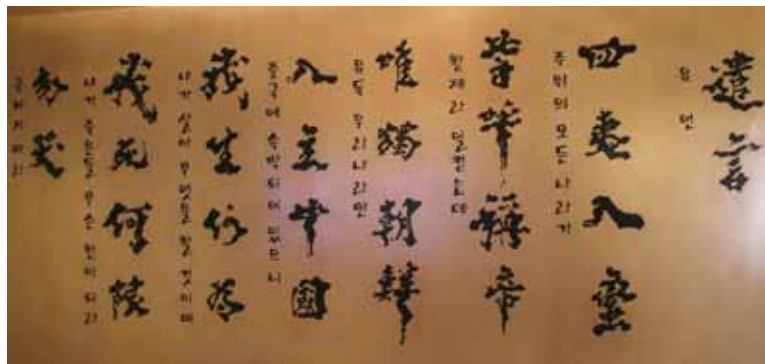 遺言
유언
四夷八蠻
주위의 모든 나라가
稱帝
황제라 일컫는데
唯獨朝鮮
유독 우리나라만
入主中國
중국에 속박되어 있으니
我生何爲
내가 살아 무엇을 할 것이며
我死何恨
내가 죽은들 무슨 한이 되리
勿哭
곡하지 마라